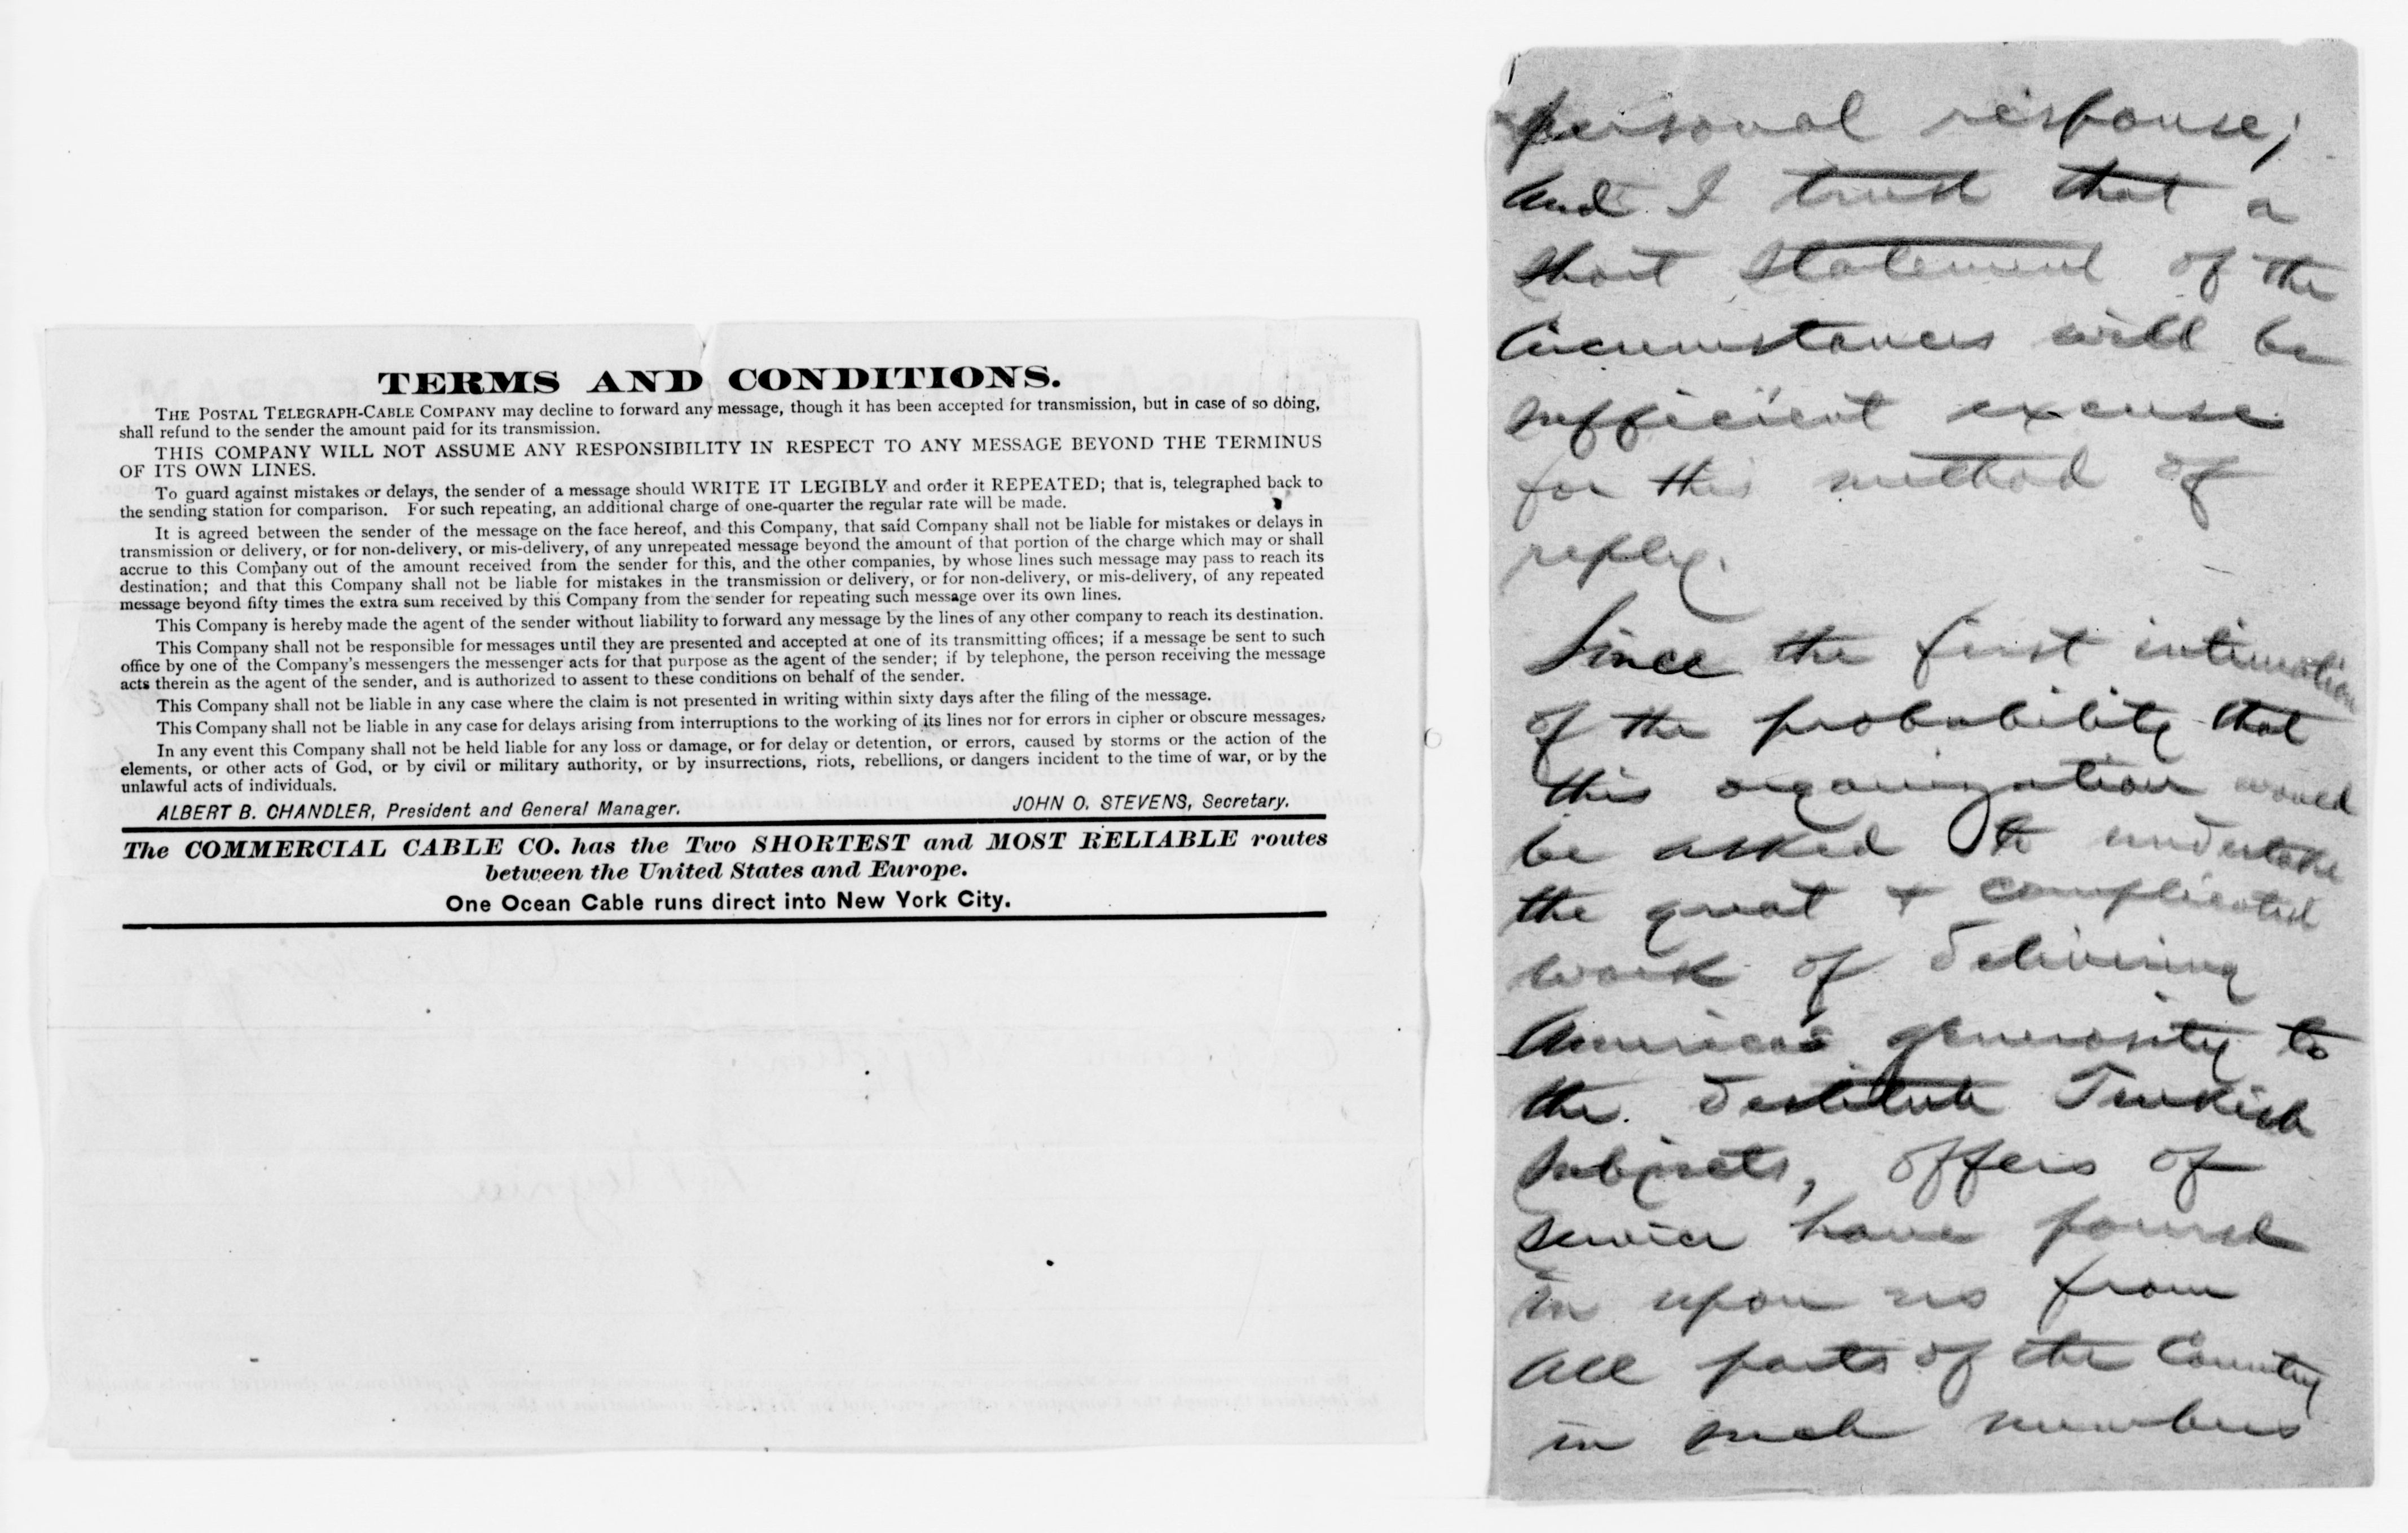 TERMS AND CONDITIONS.
THE POSTAL TELEGRAPH-CABLE COMPANY may decline to forward any message, though it has been accepted for transmission, but in case of so doing,
shall refund to the sender the amount paid for its transmission.
THIS COMPANY WILL NOT ASSUME ANY RESPONSIBILITY IN RESPECT TO ANY MESSAGE BEYOND THE TERMINUS
OF ITS OWN LINES.
To guard against mistakes or delays, the sender of a message should WRITE IT LEGIBLY and order it REPEATED; that is, telegraphed back to
the sending station for comparison. For such repeating, an additional charge of one-quarter the regular rate will be made.
It is agreed between the sender of the message on the face hereof, and this Company, that said Company shall not be liable for mistakes or delays in
transmission or delivery, or for non-delivery, or mis-delivery, of any unrepeated message beyond the amount of that portion of the charge which may or shall
accrue to this Company out of the amount received from the sender for this, and the other companies, by whose lines such message may pass to reach its
destination; and that this Company shall not be liable for mistakes in the transmission or delivery, or for non-delivery, or mis-delivery, of any repeated
message beyond fifty times the extra sum received by this Company from the sender for repeating such message over its own lines.
This Company is hereby made the agent of the sender without liability to forward any message by the lines of any other company to reach its destination.
This Company shall not be responsible for messages until they are presented and accepted at one of its transmitting offices; if a message be sent to such
office by one of the Company's messengers the messenger acts for that purpose as the agent of the sender; if by telephone, the person receiving the message
acts therein as the agent of the sender, and is authorized to assent to these conditions on behalf of the sender.
This Company shall not be liable in any case where the claim is not presented in writing within sixty days after the filing of the message.
This Company shall not be liable in any case for delays arising from interruptions to the working of its lines nor for errors in cipher or obscure messages.
In any event this Company shall not be held liable for any loss or damage, or for delay or detention, or errors, caused by storms or the action of the
elements, or other acts of God, or by civil or military authority, or by insurrections, riots, rebellions, or dangers incident to the time of war, or by the
unlawful acts of individuals.
ALBERT B. CHANDLER, President and General Manager. JOHN O. STEVENS, Secretary.
The COMMERCIAL CABLE CO. has the Two SHORTEST and MOST RELIABLE routes
between the United States and Europe.
One Ocean Cable runs direct into New York City.
personal response;
and I trust that a
short statement of the
circumstances will be
sufficient excuse
for this method of
reply.
Since the first intimation
of the probability that
this organization would
be asked to undertake
the great & complicated
work of delivering
America's generosity to
the destitute Turkish
subjects, offers of
service have poured
in upon us from
all parts of the Country
in such numbers